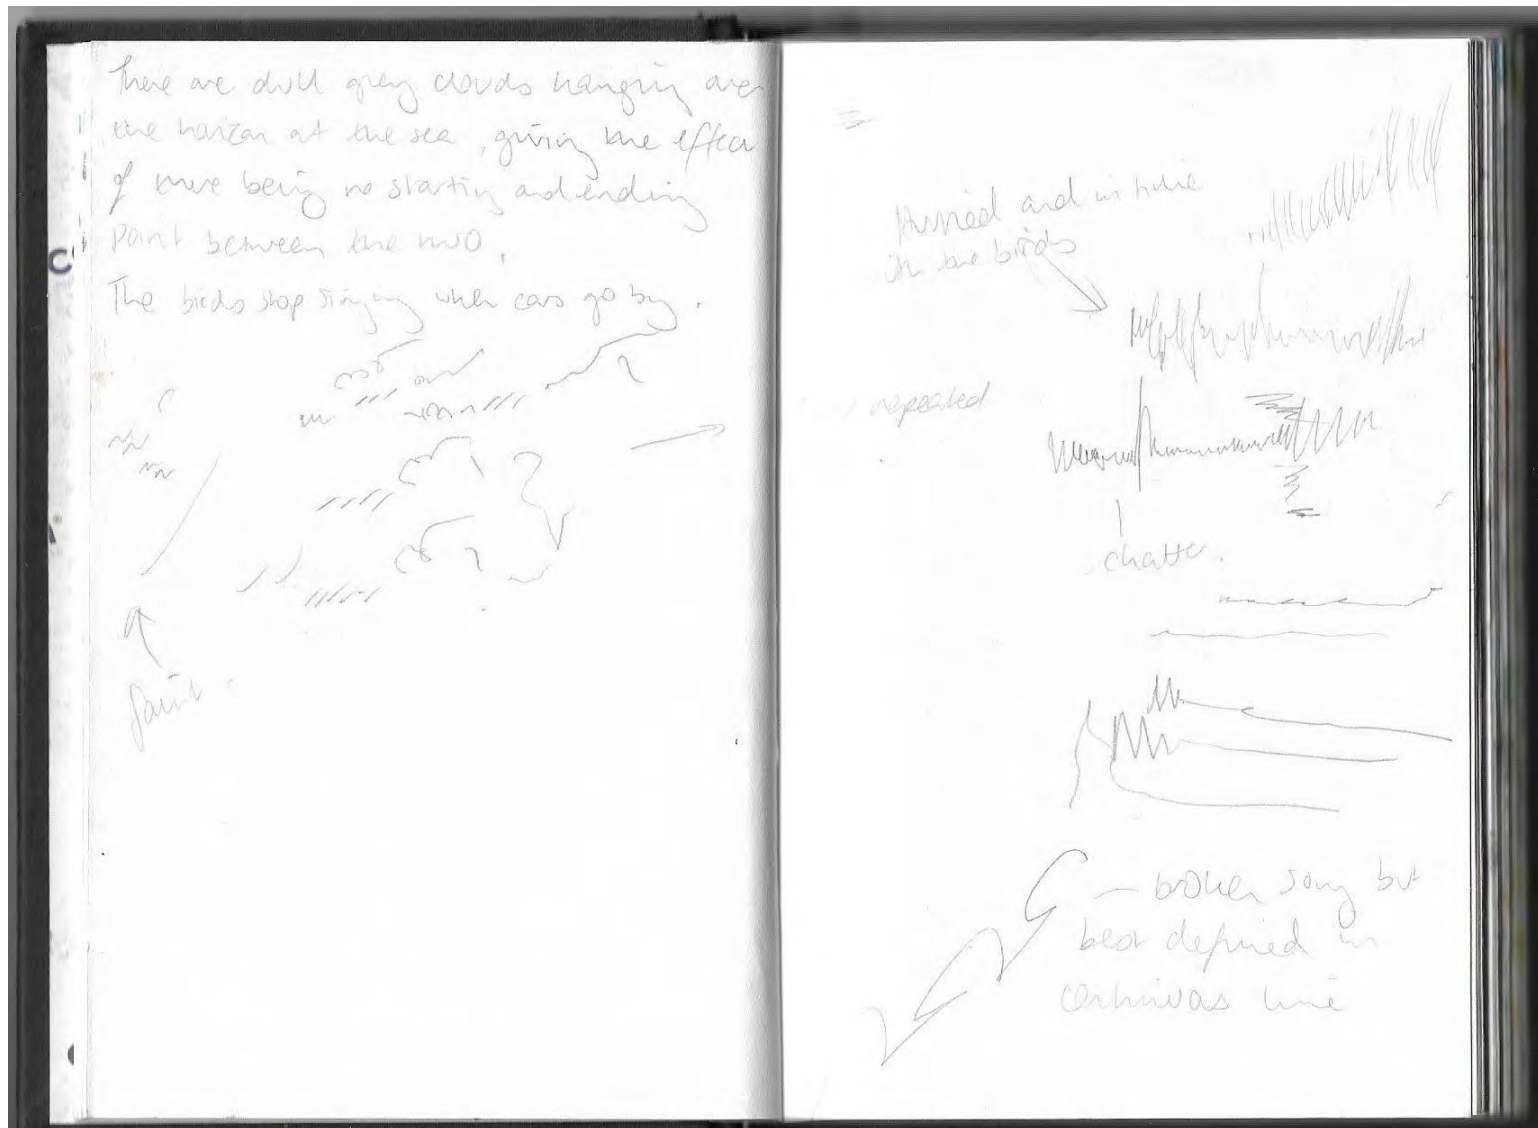 There are dull grey clouds hanging over
the horizon at the sea, giving the effect
of there being no starting and ending
point between the two.
The birds stop singing when cars go by.
faint
Hurried and in tune
the birds
repeated
chatter.
— broken song but
best defined in
continuous line